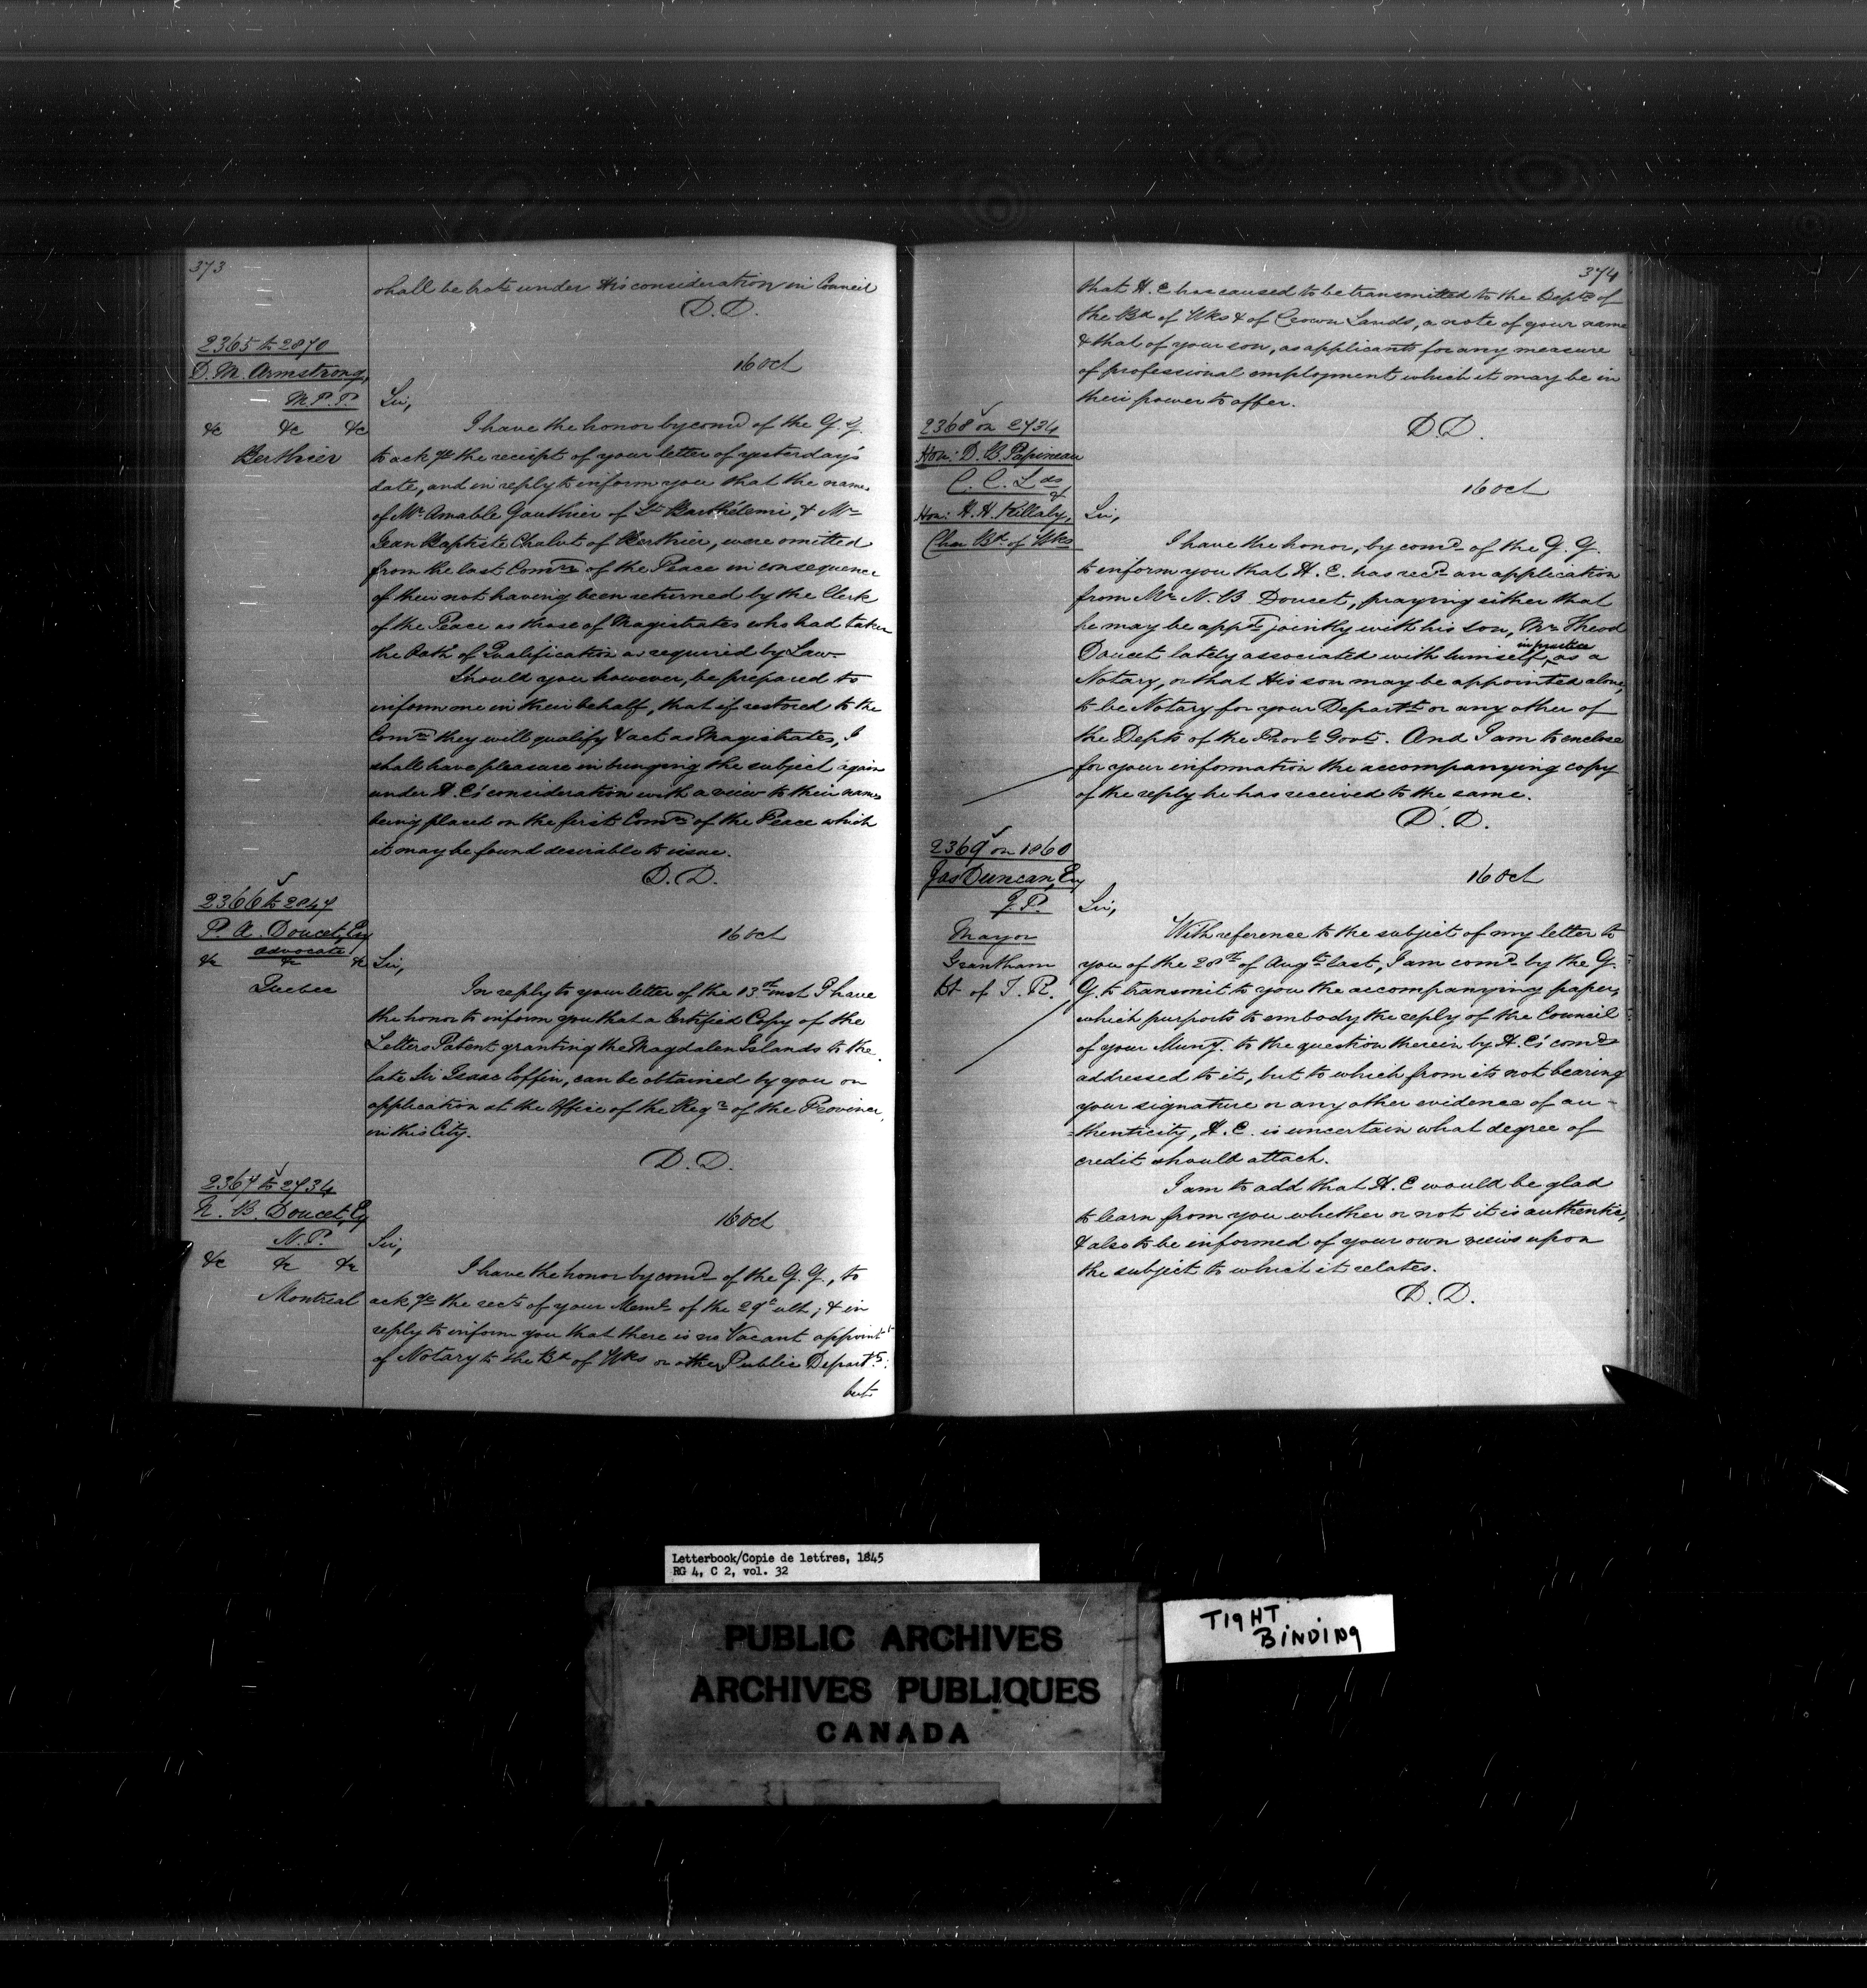 373
shall be brot under His consideration in Council
D.D.
2365 to 2870
D. M. Armstrong,
M.P.P.
&c &c &c
Berthier
16 Oct
Sir,
I have the honor by comd of the G. G.
to ackge the receipt of your letter of yesterday's
date, and in reply to inform you that the names
of Mr Amable Gauthier of St Barthélemi, & Mr
Jean Baptiste Chalut of Berthier, were omitted
from the last Comn of the Peace in consequence
of their not having been returned by the Clerk
of the Peace as those of Magistrates who had taken
the Oath of Qualification as required by Law.
Should you however, be prepared to
inform me in their behalf, that if restored to the
Comn they will qualify & act as Magistrates, I
shall have pleasure in bringing the subject again
under H.E's consideration with a view to their names
being placed on the first Comn of the Peace which
it may be found desirable to issue.
D.D.
2366 to 2847
P. A. Doucet, Esq
Advocate
&c &c &c
Quebec
16 Oct
Sir,
In reply to your letter of the 13th inst I have
the honor to inform you that a Certified Copy of the
Letters Patent granting the Magdalen Islands to the
late Sir Isaac Coffin, can be obtained by you on
application at the Office of the Regr of the Province,
in this City.
D.D.
2367 to 2734
N. B. Doucet, Esq
N.P.
&c &c &c
Montreal
16 Oct
Sir,
I have the honor by comd of the G. G., to
ackge the rect of your Meml of the 29th ult; & in
reply to inform you that there is no Vacant appointt
of Notary to the Bd of Wks or other Public Departts:
but
374
that H.E has caused to be transmitted to the Depts of
the Bd of Wks & of Crown Lands, a note of your name
& that of your son, as applicants for any measure
of professional employment which it may be in
their power to offer.
D.D.
2368 on 2734
Hon: D. B. Papineau
C. C. Lds
&
Hon: H. H. Killaly,
Chn Bd of Wks
16 Oct
Sir,
I have the honor, by comd of the G. G.
to inform you that H.E. has recd an application
from Mr N. B. Doucet, praying either that
he may be appd jointly with his son, Mr Theod
in practice
Doucet lately associated with himself, as a
Notary, or that His son may be appointed alone,
to be Notary for your Departt or any other of
the Depts of the Provl Govt. And I am to enclose
for your information the accompanying copy
of the reply he has received to the same.
D.D.
2369 on 1860
Jas Duncan, Esq
J.P.
Mayor
Grantham
Dt of T.R.
16 Oct
Sir,
With reference to the subject of my letter to
you of the 28th of Augt last, I am comd by the G.
G. to transmit to you the accompanying paper,
which purports to embody the reply of the Council
of your Muny. to the question therein by H.E's comd
addressed to it, but to which from its not bearing
your signature or any other evidence of au-
=thenticity, H.E. is uncertain what degree of
credit should attach.
I am to add that H.E would be glad
to learn from you whether or not it is authentic,
& also to be informed of your own views upon
the subject to which it relates.
D.D.
Letterbook/Copie de lettres, 1845
RG 4, C 2, vol. 32
PUBLIC ARCHIVES
ARCHIVES PUBLIQUES
CANADA
TIGHT
BINDING